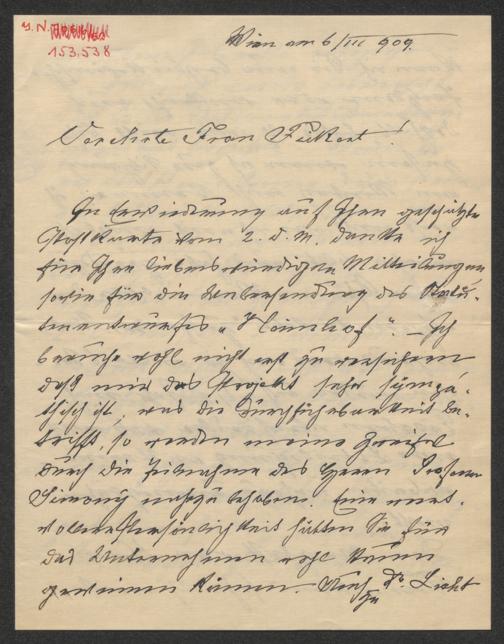 J. N.
153.538
Wien am 6/III 909.
Verehrte Frau Fickert!
In Erwiederung auf Ihre geschätzte
Postkarte vom 2. d. M. danke ich
für Ihre liebenswürdigen Mitteilungen
sowie für die Uebersendung des Statu-
tenentwurfes „Heimhof". – Ich
brauche wohl nicht erst zu versichern
daß mir das Projekt sehr sympa-
thisch ist, was die Durchführbarkeit be-
trifft, so werden meine Zweifel
durch die Teilnahme des Herrn Professor
Simony nahezu behoben. Eine wert-
vollere Persönlichkeit hätten Sie für
das Unternehmen wohl kaum
gewinnen können. Auch Dr. Licht
zu